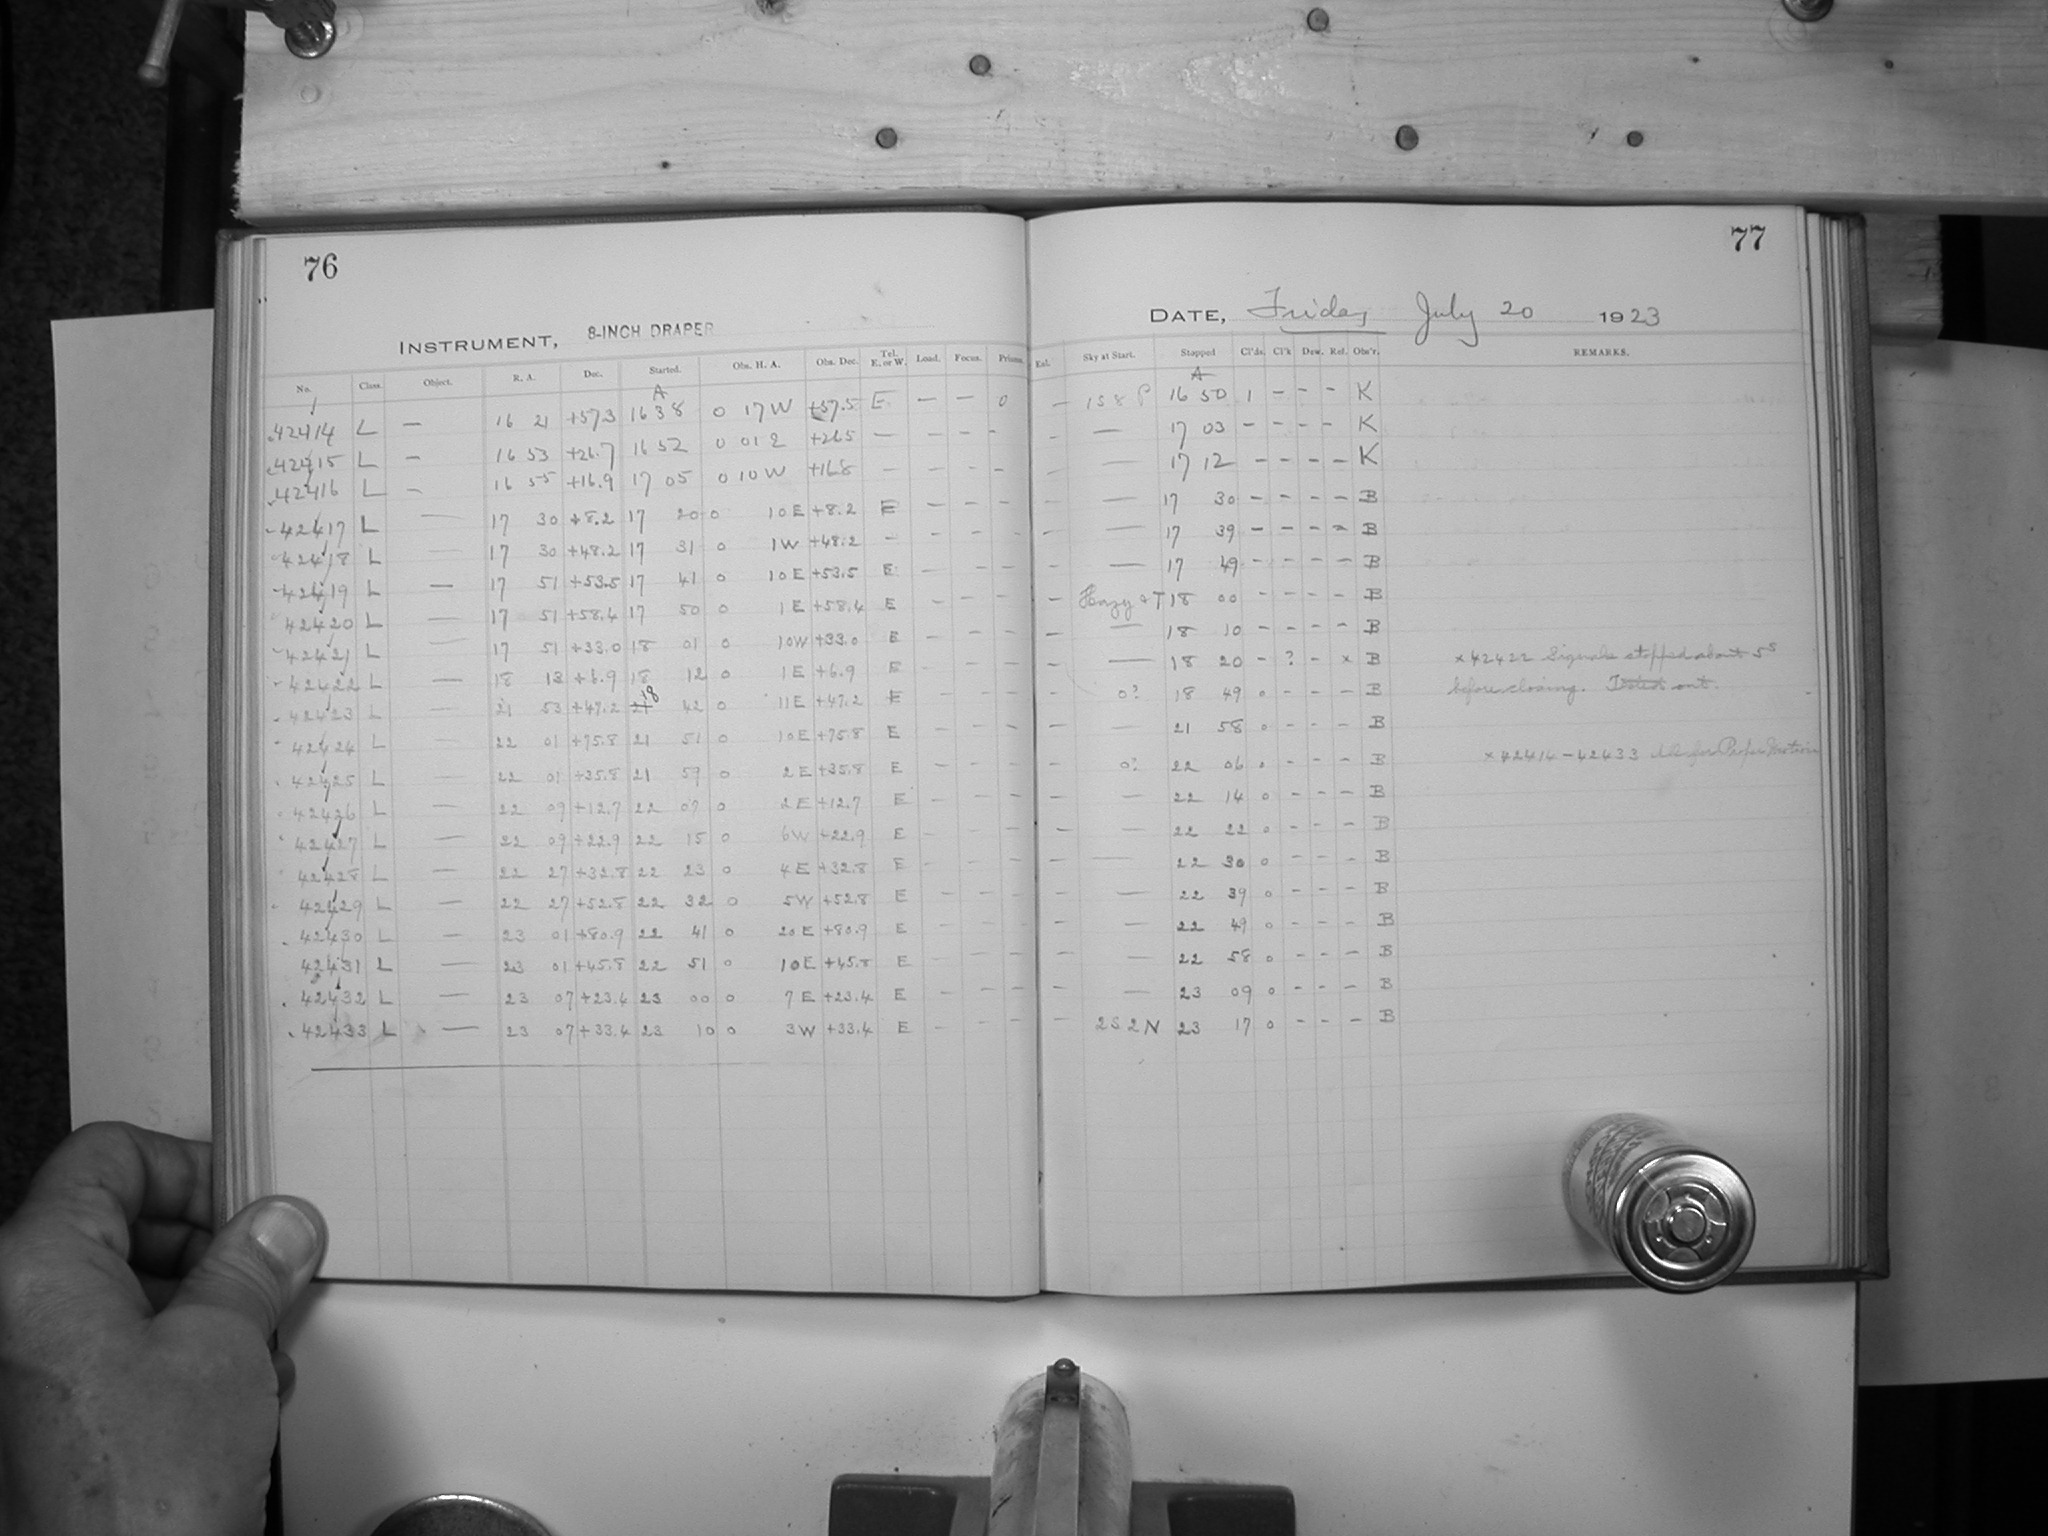 76
77
INSTRUMENT, 8-INCH DRAPER
DATE, Friday July 20 1923
No. Class. Object. R. A. Dec. Started. Obs. H. A. Obs. Dec. Tel. E. or W. Load. Focus. Prisms. Exl. Sky at Start. Stopped Cl'ds. Cl'k Dew. Rel. Obs'r. REMARKS.
A A
42414 L — 16 21 +57.3 16 38 0 17 W +57.5 E — — 0 — 1S8P 16 50 1 - - - K
42415 L — 16 53 +26.7 16 52 0 01 E +26.5 — — — - — — 17 03 - - - - K
42416 L — 16 55 +16.9 17 05 0 10 W +16.8 — — — — — — 17 12 - - - - K
42417 L — 17 30 +8.2 17 20 0 10 E +8.2 E — — — — — 17 30 - - - - B
42418 L — 17 30 +48.2 17 31 0 1 W +48.2 — — — — — — 17 39 - - - - B
42419 L — 17 51 +53.5 17 41 0 10 E +53.5 E — — — — — 17 49 - - - - B
42420 L — 17 51 +58.4 17 50 0 1 E +58.4 E — — — — Hazy & T 18 00 - - - - B
42421 L — 17 51 +33.0 18 01 0 10 W +33.0 E — — — — — 18 10 - - - - B
42422 L — 18 13 +6.9 18 12 0 1 E +6.9 E — — — — — 18 20 - ? - x B x 42422 Signals stopped about 5s
42423 L — 21 53 +47.2 21 18 42 0 11 E +47.2 E — — — — 0? 18 49 0 - - - B before closing. Tested out.
42424 L — 22 01 +75.8 21 51 0 10 E +75.8 E — — — — — 21 58 0 - - - B
42425 L — 22 01 +35.8 21 59 0 2 E +35.8 E — — — — 0? 22 06 0 - - - B x 42414 - 42433 for Proper Motion
42426 L — 22 09 +12.7 22 07 0 2 E +12.7 E — — — — — 22 14 0 - - - B
42427 L — 22 09 +22.9 22 15 0 6 W +22.9 E — — — — — 22 22 0 - - - B
42428 L — 22 27 +32.8 22 23 0 4 E +32.8 E — — — — — 22 30 0 - - - B
42429 L — 22 27 +52.8 22 32 0 5 W +52.8 E — — — — — 22 39 0 - - - B
42430 L — 23 01 +80.9 22 41 0 20 E +80.9 E — — — — — 22 49 0 - - - B
42431 L — 23 01 +45.8 22 51 0 10 E +45.8 E — — — — — 22 58 0 - - - B
42432 L — 23 07 +23.4 23 00 0 7 E +23.4 E — — — — — 23 09 0 - - - B
42433 L — 23 07 +33.4 23 10 0 3 W +33.4 E — — — — 2S2N 23 17 0 - - - B